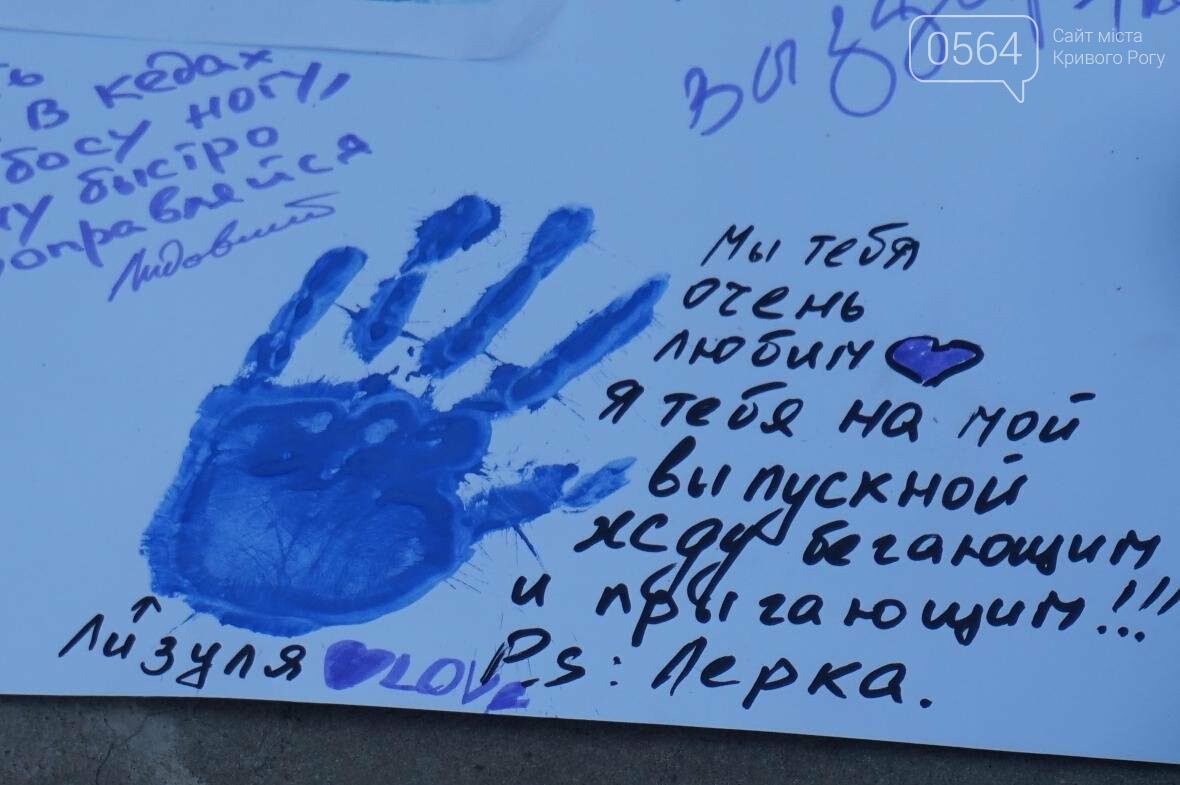 0564 Сайт міста
Кривого Рогу
в кедах
босу ногу,
быстро
Мы тебя
очень
любим
Я тебя на мой
выпускной
жду бегающим
и прыгающим!!!
Ps: Лерка.
Лизуля LOVE